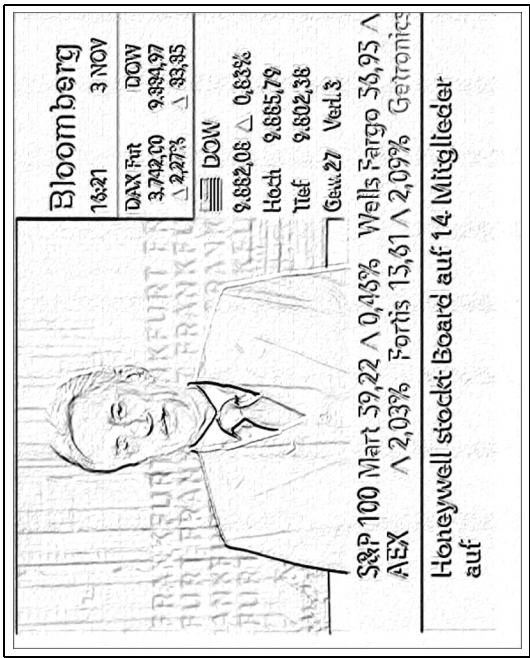 Bloomberg
16:21 3 NOV
DAX Fut DOW
3.742,00 9.884,97
△ 2,27% △ 83,85
DOW
9.882,08 △ 0,83%
Hoch 9.885,79
Tief 9.802,38
Gew.27 Verl.3
FRANKFURT
S&P 100 Mart 59,22 ∧ 0,46% Wells Fargo 56,95 ∧
AEX ∧ 2,03% Fortis 15,61 ∧ 2,09% Getronics
Honeywell stockt Board auf 14 Mitglieder
auf